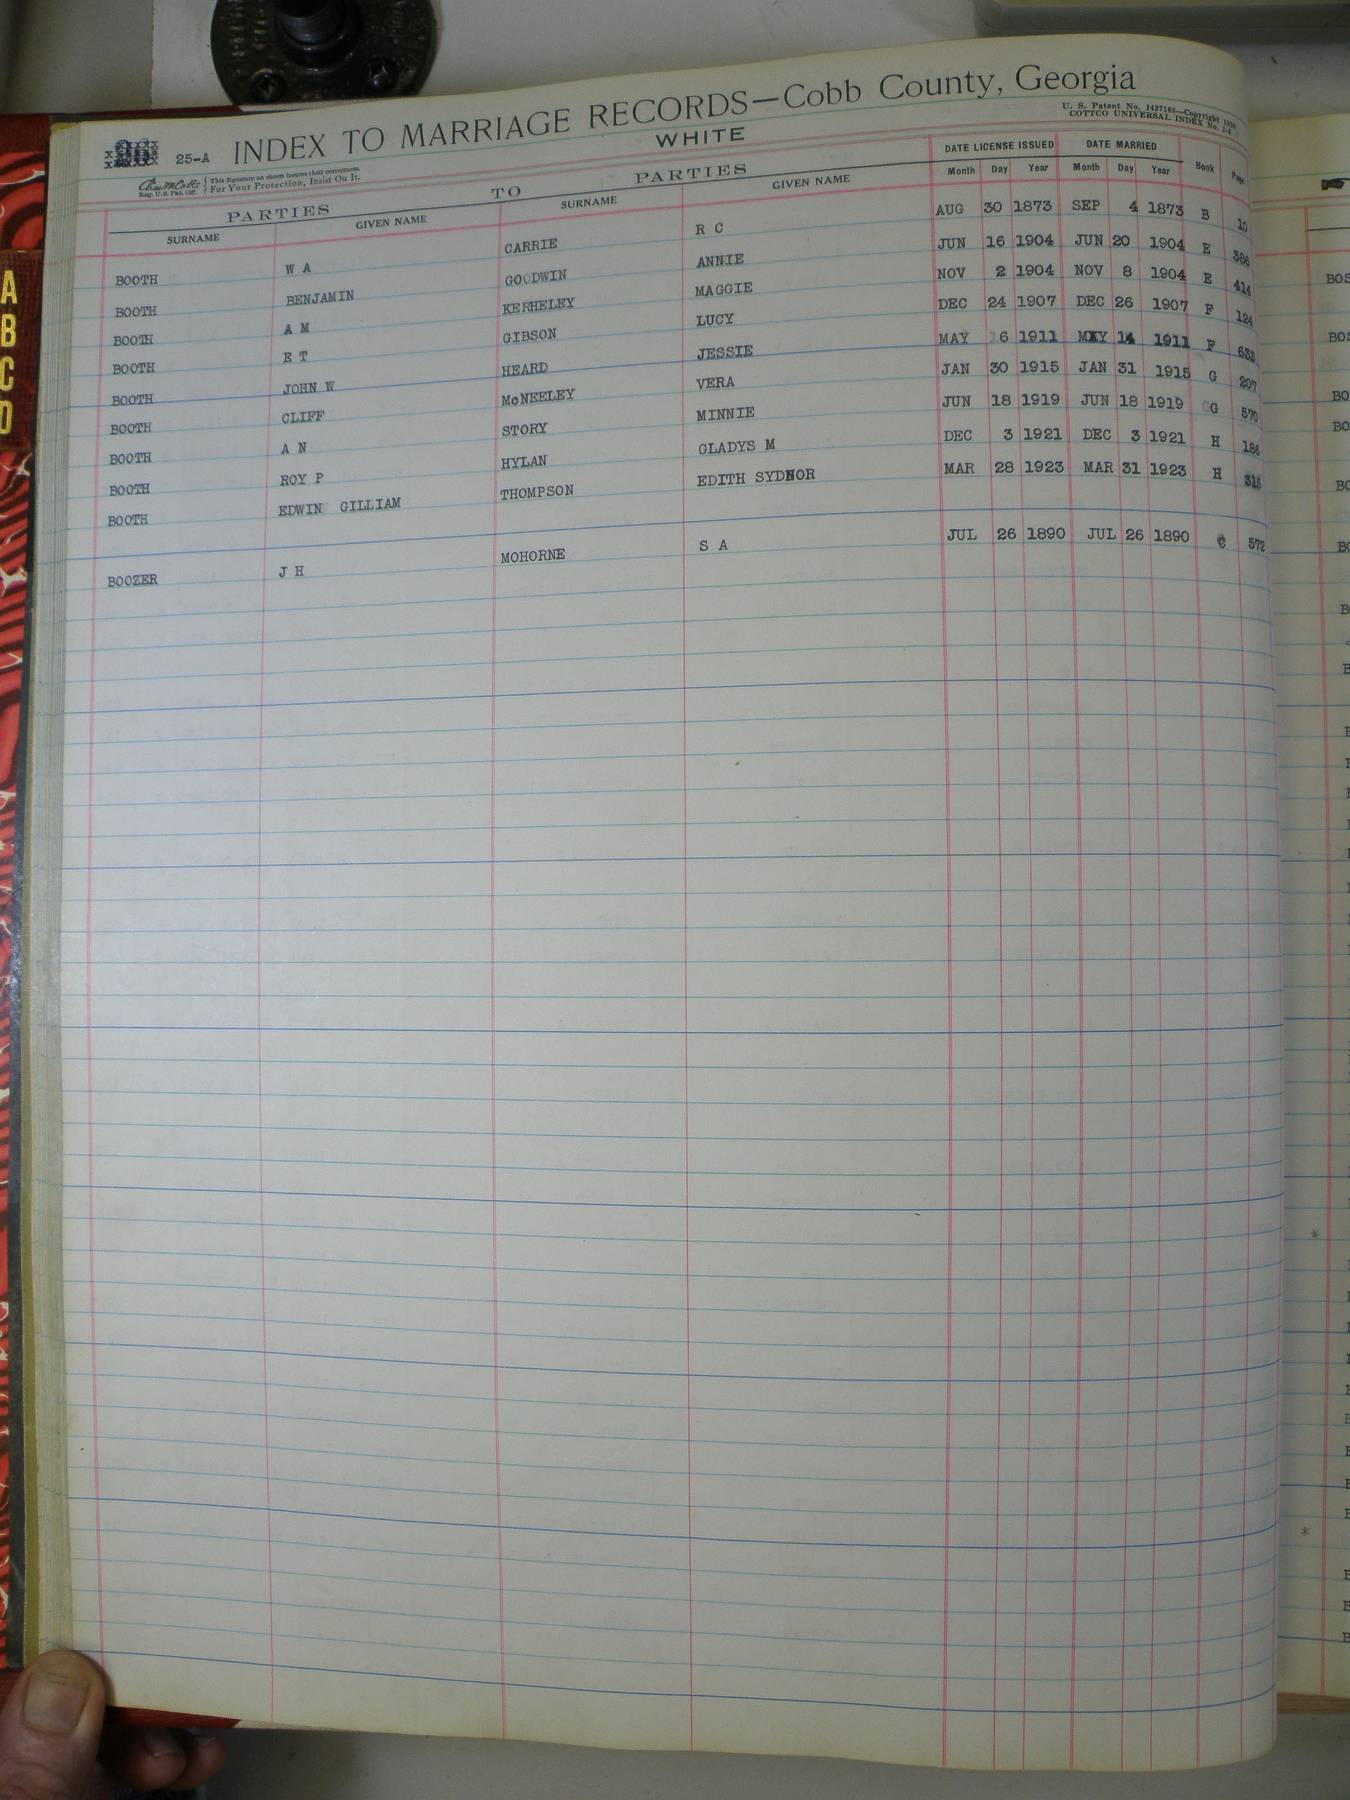 25-A INDEX TO MARRIAGE RECORDS—Cobb County, Georgia
WHITE
U. S. Patent No. 1427168—Copyright
COTTCO UNIVERSAL INDEX No. 1-4
Reg. U. S. Pat. Off.
This Signature on sheets insures their correctness.
For Your Protection, Insist On It.
PARTIES TO PARTIES DATE LICENSE ISSUED DATE MARRIED
SURNAME GIVEN NAME SURNAME GIVEN NAME Month Day Year Month Day Year Book Page
BOOTH W A CARRIE R C AUG 30 1873 SEP 4 1873 B 10
BOOTH BENJAMIN GOODWIN ANNIE JUN 16 1904 JUN 20 1904 E 386
BOOTH A M KERHELEY MAGGIE NOV 2 1904 NOV 8 1904 E 414
BOOTH E T GIBSON LUCY DEC 24 1907 DEC 26 1907 F 124
BOOTH JOHN W HEARD JESSIE MAY 6 1911 MAY 14 1911 F 633
BOOTH CLIFF McNEELEY VERA JAN 30 1915 JAN 31 1915 G 207
BOOTH A N STORY MINNIE JUN 18 1919 JUN 18 1919 G 570
BOOTH ROY P HYLAN GLADYS M DEC 3 1921 DEC 3 1921 H 186
BOOTH EDWIN GILLIAM THOMPSON EDITH SYDNOR MAR 28 1923 MAR 31 1923 H 315
BOOZER J H MOHORNE S A JUL 26 1890 JUL 26 1890 C 572
A
B
C
D